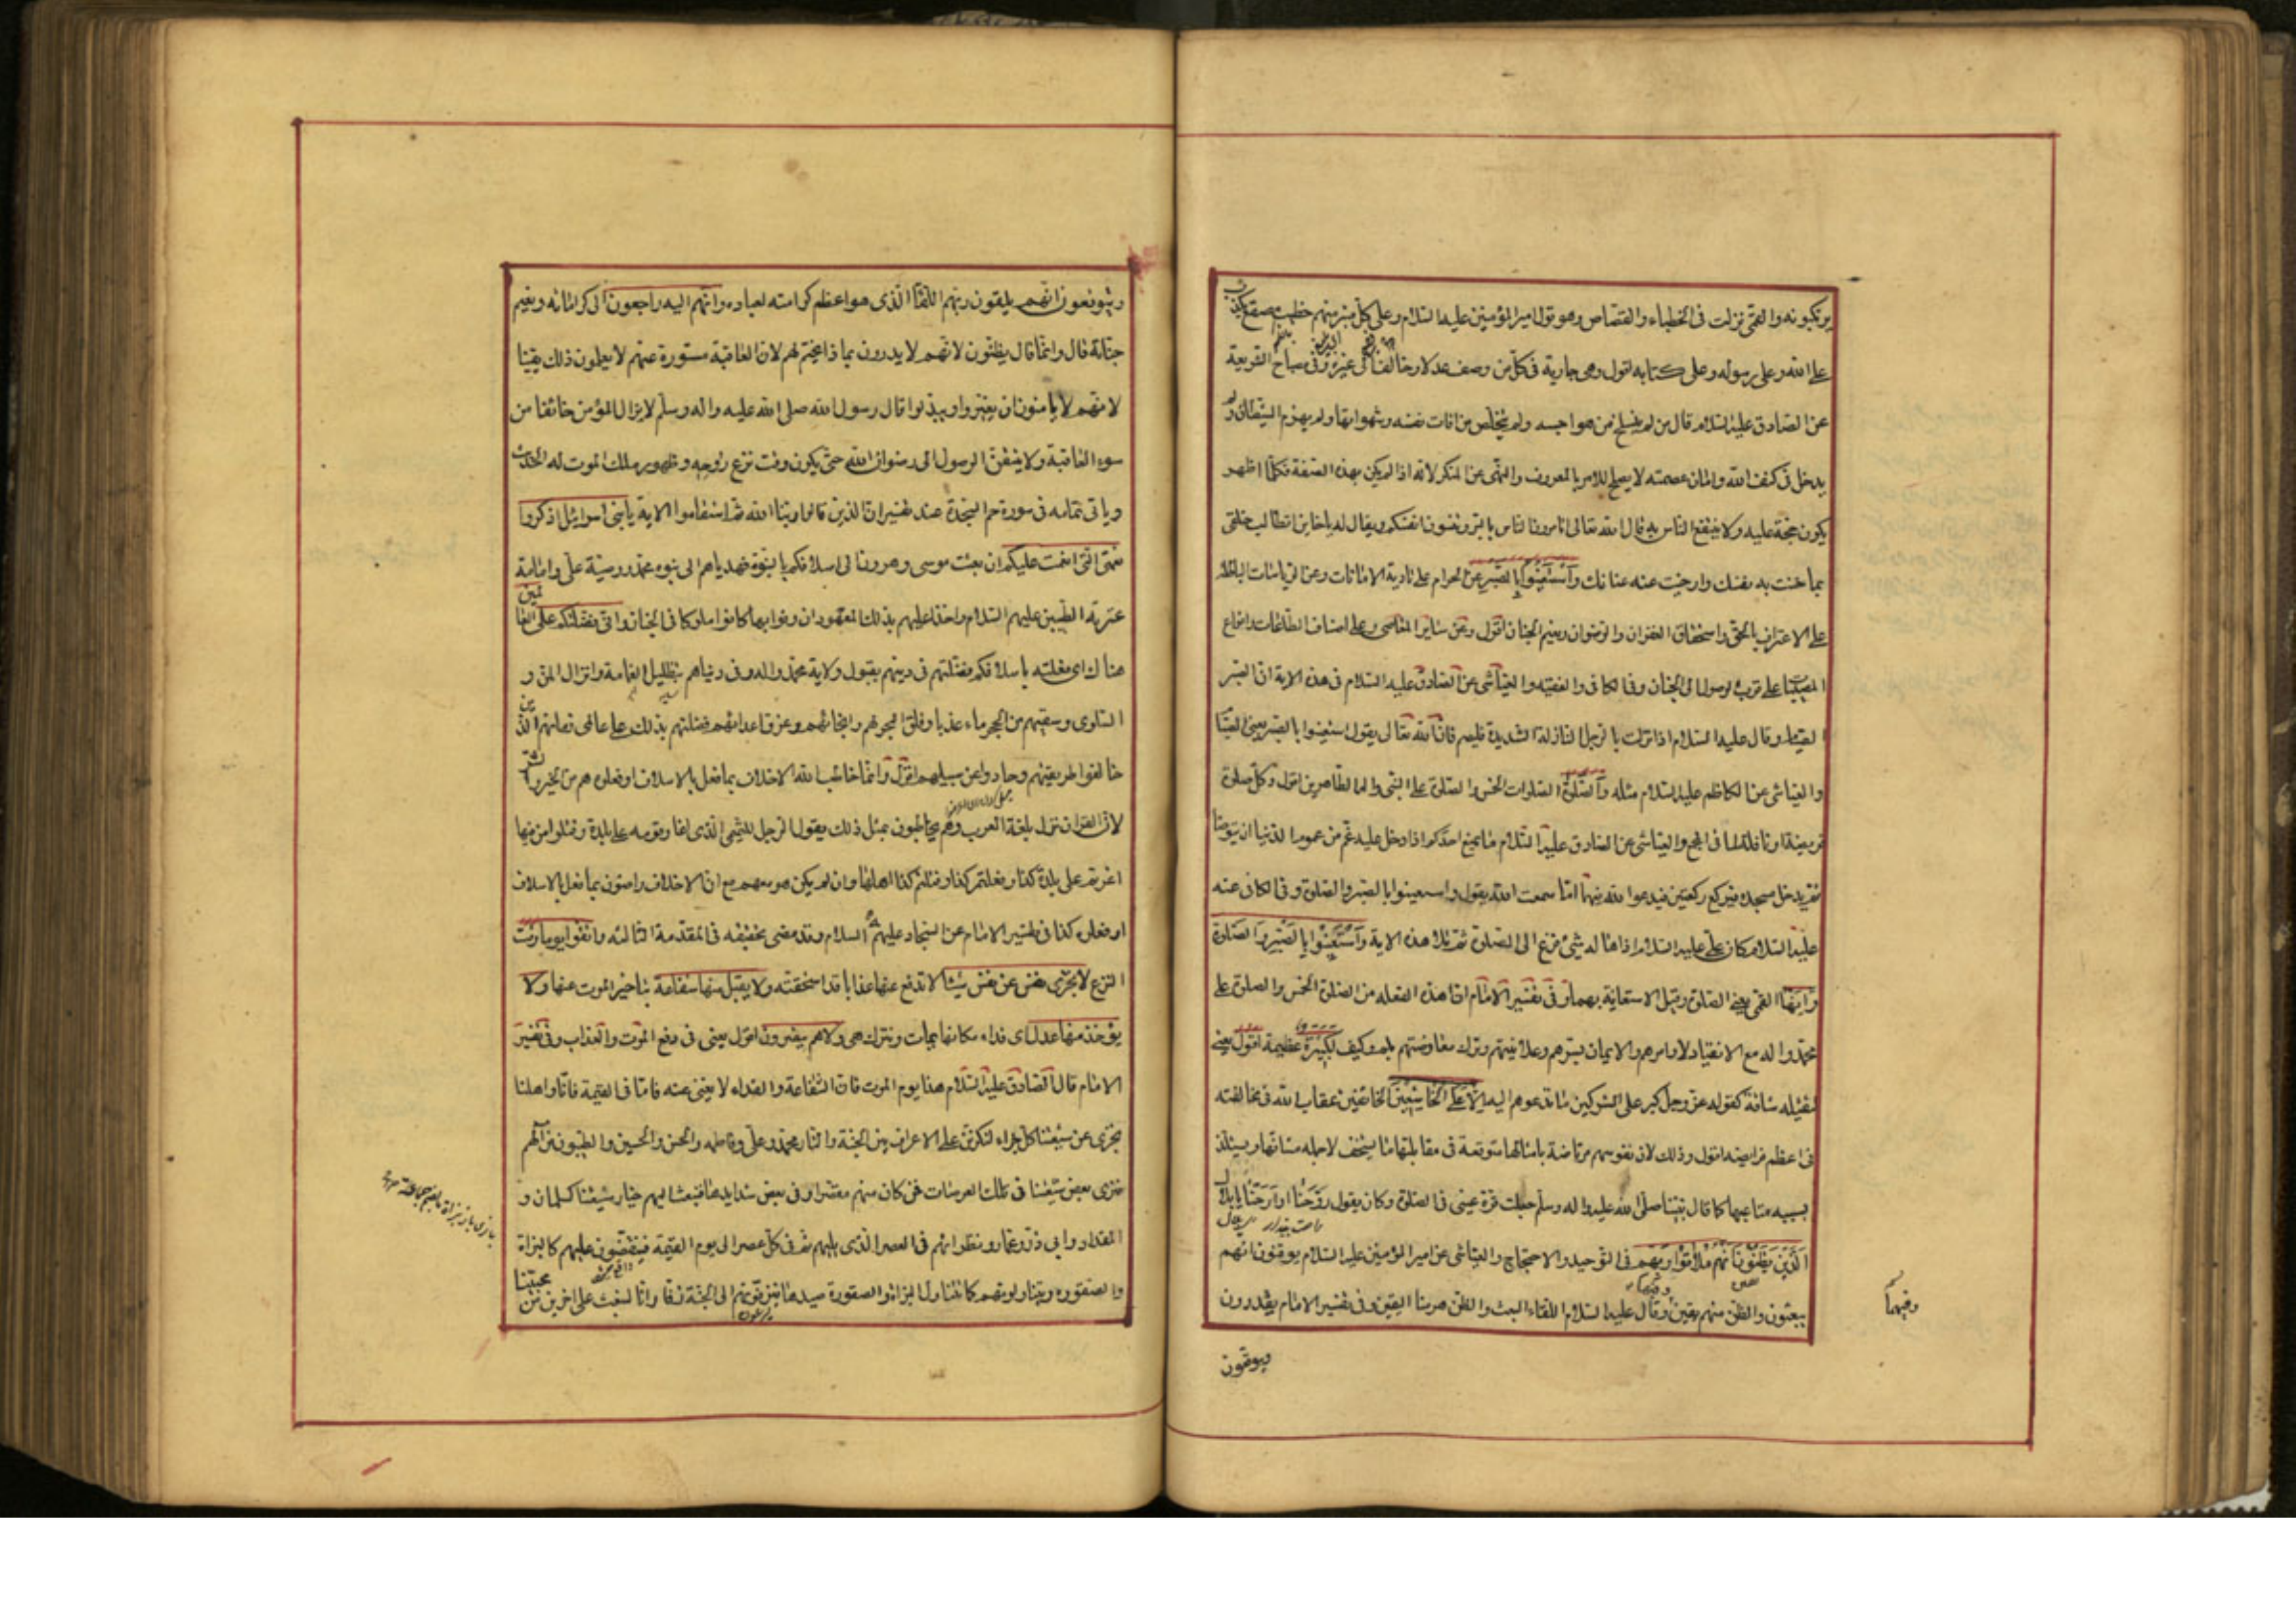 يرتكبونه والقمى نزلت فى الخطباء والقصاص وهو قول امير المؤمنين عليه السلام وعلى كل منبر منهم خطيب مصقع يكذب
على الله وعلى رسوله وعلى كتابه اقول وهى جارية فى كل من وصف عدلا وخالف الى غيره وفى مصباح الشريعة
عن الصادق عليه السلام قال من لم ينسلخ من هواجسه ولم يتخلص من افات نفسه وشهواتها ولم يهزم الشيطان ولم
يدخل فى كنف الله وامان عصمته لا يصلح للامر بالمعروف والنهى عن المنكر لانه اذا لم يكن بهذه الصفة فكلما اظهر
يكون حجة عليه ولا ينتفع الناس به قال الله تعالى اتامرون الناس بالبر وتنسون انفسكم ويقال له يا خاين اتطالب خلقى
بما خنت به نفسك وارخيت عنه عنانك واستعينوا بالصبر عن الحرام على تادية الامانات وعن الرياسات الباطلة
على الاعتراف بالحق واستحقاق الغفران والرضوان ونعيم الجنان اقول وعن ساير المعاصى وعلى اصناف الطاعات وانواع
المصيبات على قرب الوصول الى الجنان وفى الكافى والفقيه والعياشى عن الصادق عليه السلام فى هذه الاية ان الصبر
الصيام وقال عليه السلام اذا نزلت بالرجل النازلة الشديدة فليصم فان الله تعالى يقول استعينوا بالصبر يعنى الصيام
والعياشى عن الكاظم عليه السلام مثله والصلوة الصلوات الخمس والصلوة على النبى واله الطاهرين اقول وكل صلوة
فريضة او نافلة لما فى المجمع والعياشى عن الصادق عليه السلام ما يمنع احدكم اذا دخل عليه غم من غموم الدنيا ان يتوضا
ثم يدخل مسجده فيركع ركعتين فيدعو الله فيهما اما سمعت الله يقول واستعينوا بالصبر والصلوة وفى الكافى عنه
عليه السلام كان على عليه السلام اذا هاله شئ فزع الى الصلوة ثم تلا هذه الاية واستعينوا بالصبر والصلوة
وانها القمى يعنى الصلوة وقيل الاستعانة بهما وفى تفسير الامام ان هذه الفعلة من الصلوة الخمس والصلوة على
محمد واله مع الانقياد لاوامرهم والايمان بسرهم وعلانيتهم وترك معارضتهم بلم وكيف لكبيرة عظيمة اقول يعنى
لثقيلة شاقة كقوله عز وجل كبر على المشركين ما تدعوهم اليه الا على الخاشعين الخائفين عقاب الله فى مخالفته
فى اعظم فرايضه اقول وذلك لان نفوسهم مرتاضة بامثالها متوقعة فى مقابلتها ما يستخف لاجله مشاقها ويستلذ
بسببه متاعبها كما قال نبينا صلى الله عليه واله وسلم جعلت قرة عينى فى الصلوة وكان يقول روحنا او ارحنا يا بلال
الذين يظنون انهم ملاقوا ربهم فى التوحيد والاحتجاج والعياشى عن امير المؤمنين عليه السلام يوقنون انهم
يبعثون والظن منهم يقين وقال عليه السلام اللقاء البعث والظن هيهنا اليقين وفى تفسير الامام يقدرون
وفيهما
ويتوقعون
ويتوقعون انهم يلقون ربهم اللقاء الذى هو اعظم كرامته لعباده وانهم اليه راجعون الى كراماته ونعيم
جناته قال وانما قال يظنون لانهم لا يدرون بما ذا يختم لهم لان العاقبة مستورة عنهم لا يعلمون ذلك يقينا
لانهم لا يامنون ان يغيروا ويبدلوا قال رسول الله صلى الله عليه واله وسلم لا يزال المؤمن خائفا من
سوء العاقبة ولا يتيقن الوصول الى رضوان الله حتى يكون وقت نزع روحه وظهور ملك الموت له الحديث
وياتى تمامه فى سورة حم السجدة عند تفسير ان الذين قالوا ربنا الله ثم استقاموا الاية يا بنى اسرائيل اذكروا
نعمتى التى انعمت عليكم ان بعثت موسى وهرون الى اسلافكم بالنبوة فهدياهم الى نبوة محمد ووصية على وامامة
عترته الطيبين عليهم السلام واخذا عليهم بذلك العهود ان وفوا بها كانوا ملوكا فى الجنان وانى فضلتكم على العالمين
هناك اى فعلته باسلافكم فضلتهم فى دينهم بقبول ولاية محمد واله وفى دنياهم بتظليل الغمامة وانزال المن و
السلوى وسقيهم من الحجر ماء عذبا وفلق البحر لهم وانجائهم وغرق اعدائهم فضلتهم بذلك على عالمى زمانهم الذين
خالفوا طريقتهم وحادوا عن سبيلهم اقول وانما خاطب الله الاخلاف بما فعل بالاسلاف او فعلوه هم من الخير والشر
لان القران نزل بلغة العرب وهم يخاطبون بمثل ذلك يقول الرجل للتميمى الذى اغار قومه على بلدة وقتلوا من فيها
اغرتم على بلدة كذا وفعلتم كذا وقتلتم كذا اهلها وان لم يكن هو معهم مع ان الاخلاف راضون بما فعل بالاسلاف
او فعلوه كذا فى تفسير الامام عن السجاد عليهم السلام وقد مضى تحقيقه فى المقدمة الثالثة واتقوا يوما وقت
النزع لا تجزى نفس عن نفس شيئا لا تدفع عنها عذابا قد استحقته ولا يقبل منها شفاعة بتاخير الموت عنها ولا
يؤخذ منها عدل اى فداء مكانها يمات ويترك هى ولا هم ينصرون اقول يعنى فى دفع الموت والعذاب وفى تفسير
الامام قال الصادق عليه السلام هذا يوم الموت فان الشفاعة والفداء لا يغنى عنه فاما فى القيمة فانا واهلنا
نجزى عن شيعتنا كل جزاء لنكونن على الاعراف بين الجنة والنار محمد وعلى وفاطمه والحسن والحسين والطيبون من الهم
فنرى بعض شيعتنا فى تلك العرصات فمن كان منهم مقصرا وفى بعض شدايدها فنبعث اليهم خيار شيعتنا كسلمان و
المقداد وابى ذر وعمار ونظرائهم فى العصر الذى يليهم ثم فى كل عصر الى يوم القيمة فينقضون عليهم كالبزاة
والصقورة ويتناولونهم كما يتناول البزاة والصقورة صيدها فيزفونهم الى الجنة زفا وانا لنبعث على اخرين من
محبينا